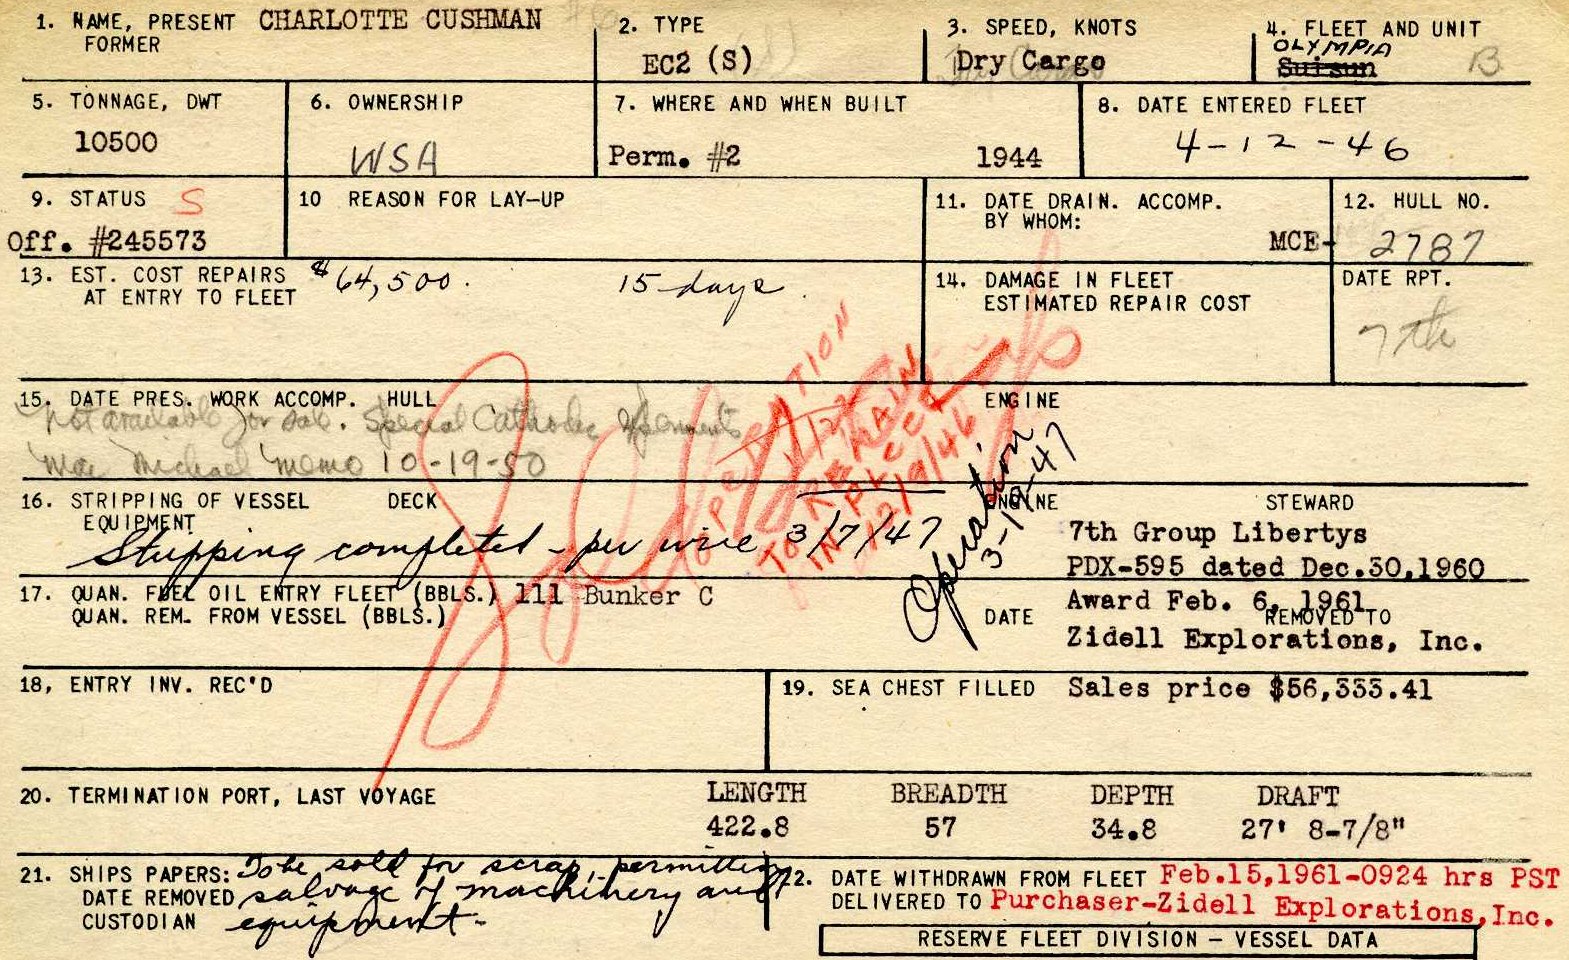 1. NAME, PRESENT CHARLOTTE CUSHMAN
FORMER
2. TYPE
EC2 (S)
3. SPEED, KNOTS
Dry Cargo
4. FLEET AND UNIT
OLYMPIA
Suisun B
5. TONNAGE, DWT
10500
6. OWNERSHIP
WSA
7. WHERE AND WHEN BUILT
Perm. #2 1944
8. DATE ENTERED FLEET
4-12-46
9. STATUS S
Off. #245573
10 REASON FOR LAY-UP
11. DATE DRAIN. ACCOMP.
BY WHOM:
12. HULL NO.
MCE- 2787
13. EST. COST REPAIRS $64,500. 15 days
AT ENTRY TO FLEET
14. DAMAGE IN FLEET
ESTIMATED REPAIR COST
DATE RPT.
7th
15. DATE PRES. WORK ACCOMP. HULL ENGINE
Not available for sale. Special Cathodic
Michael memo 10-19-50
OPERATION
TO REMAIN
IN PLACE
12/9/46
Operation
3-19-47
16. STRIPPING OF VESSEL DECK ENGINE STEWARD
EQUIPMENT
Stripping completed - per wire 3/7/47
7th Group Libertys
PDX-595 dated Dec.30,1960
17. QUAN. FUEL OIL ENTRY FLEET (BBLS.) 111 Bunker C
QUAN. REM. FROM VESSEL (BBLS.)
DATE REMOVED TO
Award Feb. 6, 1961
Zidell Explorations, Inc.
18, ENTRY INV. REC'D
19. SEA CHEST FILLED Sales price $56,333.41
20. TERMINATION PORT, LAST VOYAGE
LENGTH BREADTH DEPTH DRAFT
422.8 57 34.8 27' 8-7/8"
21. SHIPS PAPERS: To be sold for scrap, permitting
DATE REMOVED salvage of machinery and
CUSTODIAN equipment-
22. DATE WITHDRAWN FROM FLEET Feb.15,1961-0924 hrs PST
DELIVERED TO Purchaser-Zidell Explorations,Inc.
RESERVE FLEET DIVISION - VESSEL DATA